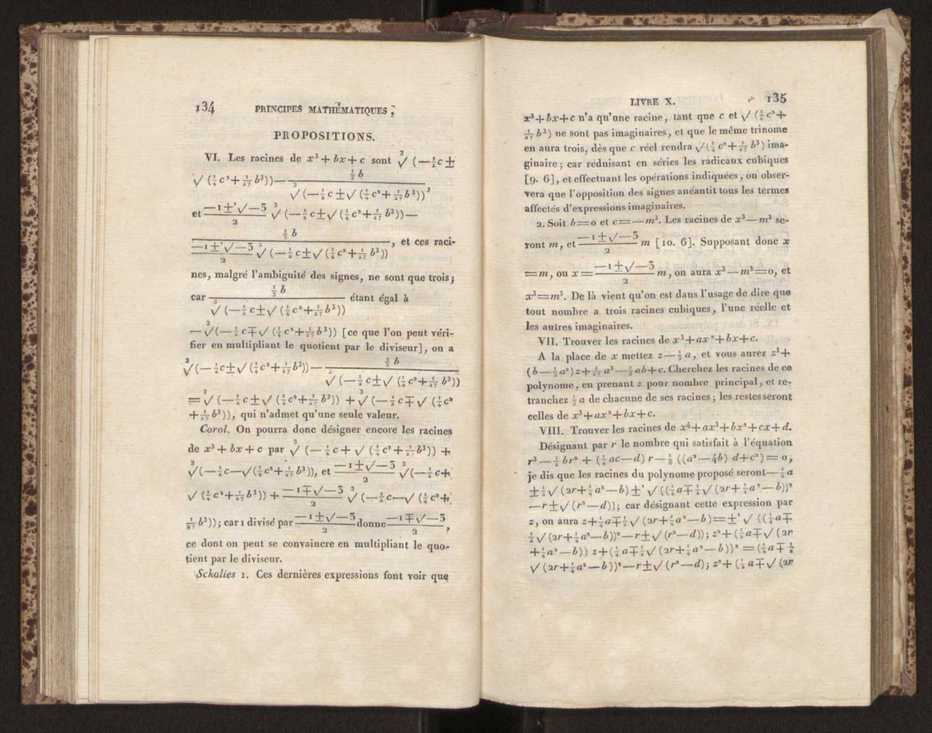 134 PRINCIPES MATHÉMATIQUES,
PROPOSITIONS.
VI. Les racines de x³+bx+c sont ∛(—½c±
√(¼c²+1/27 b³))— ⅓b / ∛(—½c±√(¼c²+1/27 b³)),
et —1±'√—3 / 2 ∛(—½c±√(¼c²+1/27 b³))—
⅓b / —1±'√—3 / 2 ∛(—½c±√(¼c²+1/27 b³)) , et ces raci-
nes, malgré l'ambiguité des signes, ne sont que trois;
car ⅓b / ∛(—½c±√(¼c²+1/27 b³)) étant égal à
—∛(—½c∓√(¼c²+1/27 b³)) [ce que l'on peut véri-
fier en multipliant le quotient par le diviseur], on a
∛(—½c±√(¼c²+1/27 b³))— ⅓b / ∛(—½c±√(¼c²+1/27 b³))
=∛(—½c±√(¼c²+1/27 b³))+∛(—½c∓√(¼c²
+1/27 b³)), qui n'admet qu'une seule valeur.
Corol. On pourra donc désigner encore les racines
de x³+bx+c par ∛(—½c+√(¼c²+1/27 b³))+
∛(—½c—√(¼c²+1/27 b³)), et —1±√—3 / 2 ∛(—½c+
√(¼c²+1/27 b³))+ —1∓√—3 / 2 ∛(—½c—√(¼c²+
1/27 b³)); car 1 divisé par —1±√—3 / 2 donne —1∓√—3 / 2 ,
ce dont on peut se convaincre en multipliant le quo-
tient par le diviseur.
Scholies 1. Ces dernières expressions font voir que
LIVRE X. 135
x³+bx+c n'a qu'une racine, tant que c et √(¼c²+
1/27 b³) ne sont pas imaginaires, et que le même trinome
en aura trois, dès que c réel rendra √(¼c²+1/27 b³) ima-
ginaire; car réduisant en séries les radicaux cubiques
[9. 6], et effectuant les opérations indiquées, on obser-
vera que l'opposition des signes anéantit tous les termes
affectés d'expressions imaginaires.
2. Soit b=0 et c=—m³. Les racines de x³—m³ se-
ront m, et —1±√—3 / 2 m [10. 6]. Supposant donc x
=m, ou x= —1±√—3 / 2 m, on aura x³—m³=0, et
x³=m³. De là vient qu'on est dans l'usage de dire que
tout nombre a trois racines cubiques, l'une réelle et
les autres imaginaires.
VII. Trouver les racines de x³+ax²+bx+c.
A la place de x mettez z—⅓a, et vous aurez z³+
(b—⅓a²)z+2/27 a³—⅓ab+c. Cherchez les racines de ce
polynome, en prenant z pour nombre principal, et re-
tranchez ⅓a de chacune de ses racines; les restes seront
celles de x³+ax²+bx+c.
VIII. Trouver les racines de x⁴+ax³+bx²+cx+d.
Désignant par r le nombre qui satisfait à l'équation
r³—½br²+(¼ac—d)r—⅛((a²—4b)d+c²)=0,
je dis que les racines du polynome proposé seront—¼a
±½√(2r+¼a²—b)±'√((¼a∓½√(2r+¼a²—b))²
—r±√(r²—d)); car désignant cette expression par
z, on aura z+¼a∓½√(2r+¼a²—b)=±'√((¼a∓
½√(2r+¼a²—b))²—r±√(r²—d)); z²+(½a∓√(2r
+¼a²—b))z+(¼a∓½√(2r+¼a²—b))²=(¼a∓½
√(2r+¼a²—b))²—r±√(r²—d); z²+(½a∓√(2r